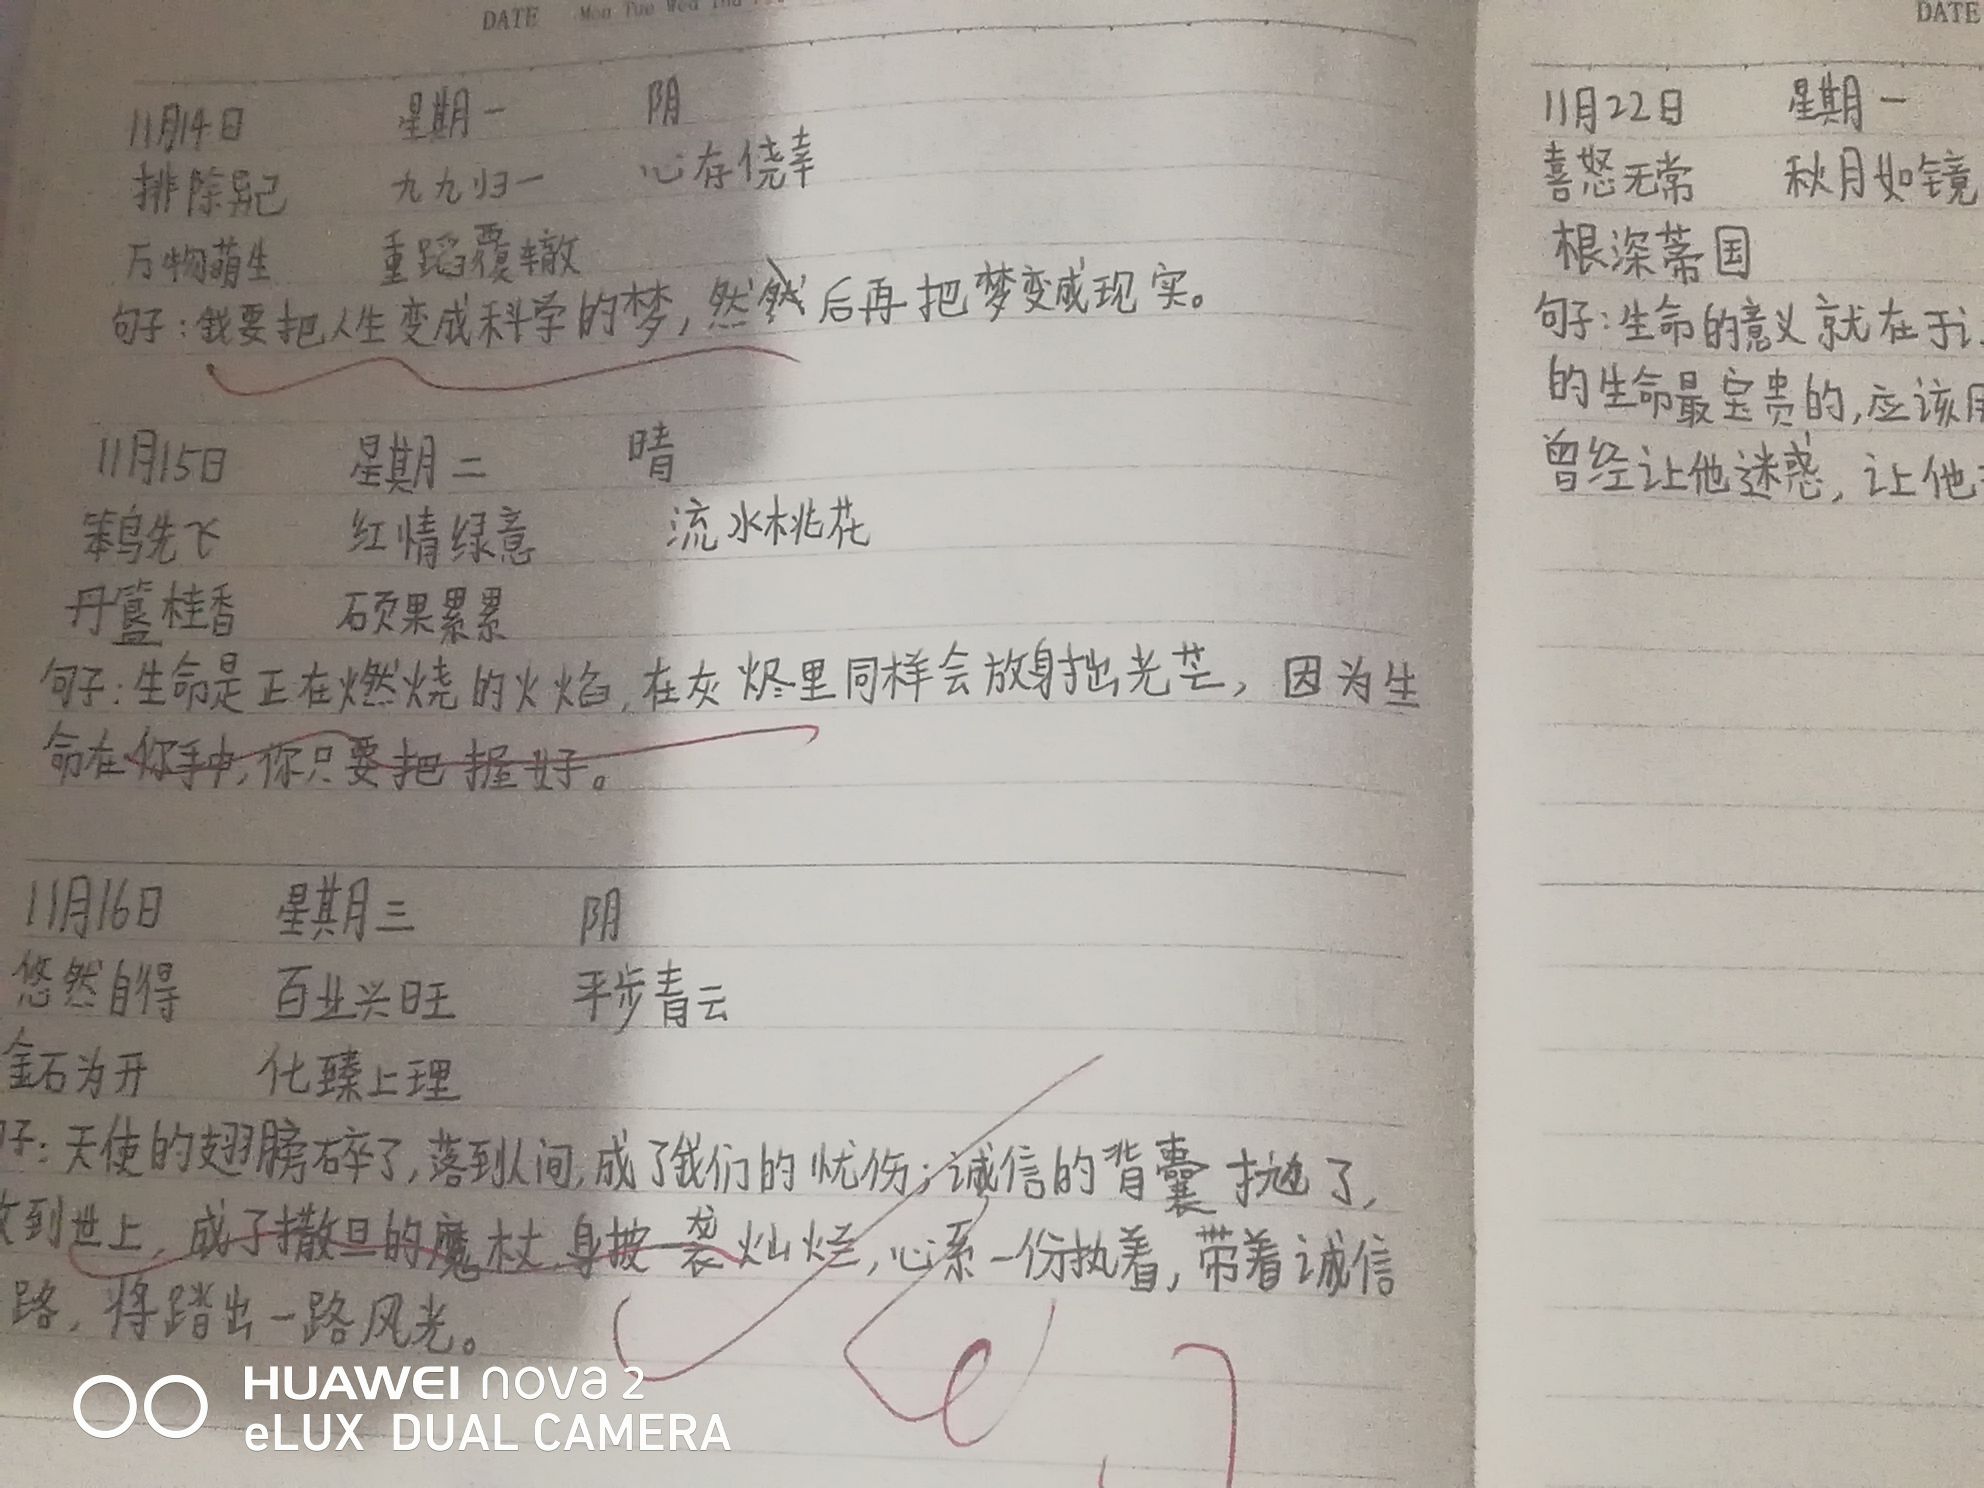 DATE Mon Tue Wed Thu
11月14日 星期一 阴
排除异己 九九归一 心存侥幸
万物萌生 重蹈覆辙
句子:我要把人生变成科学的梦,然后再把梦变成现实。
11月15日 星期二 晴
笨鸟先飞 红情绿意 流水桃花
丹桂香 硕果累累
句子:生命是正在燃烧的火焰,在灰烬里同样会放射出光芒,因为生
命在你手中,你只要把握好。
11月16日 星期三 阴
悠然自得 百业兴旺 平步青云
金石为开 化臻上理
子:天使的翅膀碎了,落到人间,成了我们的忧伤;诚信的背囊抛了,
到世上,成了撒旦的魔杖.身披一袭灿烂,心系一份执着,带着诚信
路,将踏出一路风光。
DATE
11月22日 星期一
喜怒无常 秋月如镜
根深蒂固
句子:生命的意义就在于
的生命最宝贵的,应该
曾经让他迷惑,让他
HUAWEI nova 2
eLUX DUAL CAMERA